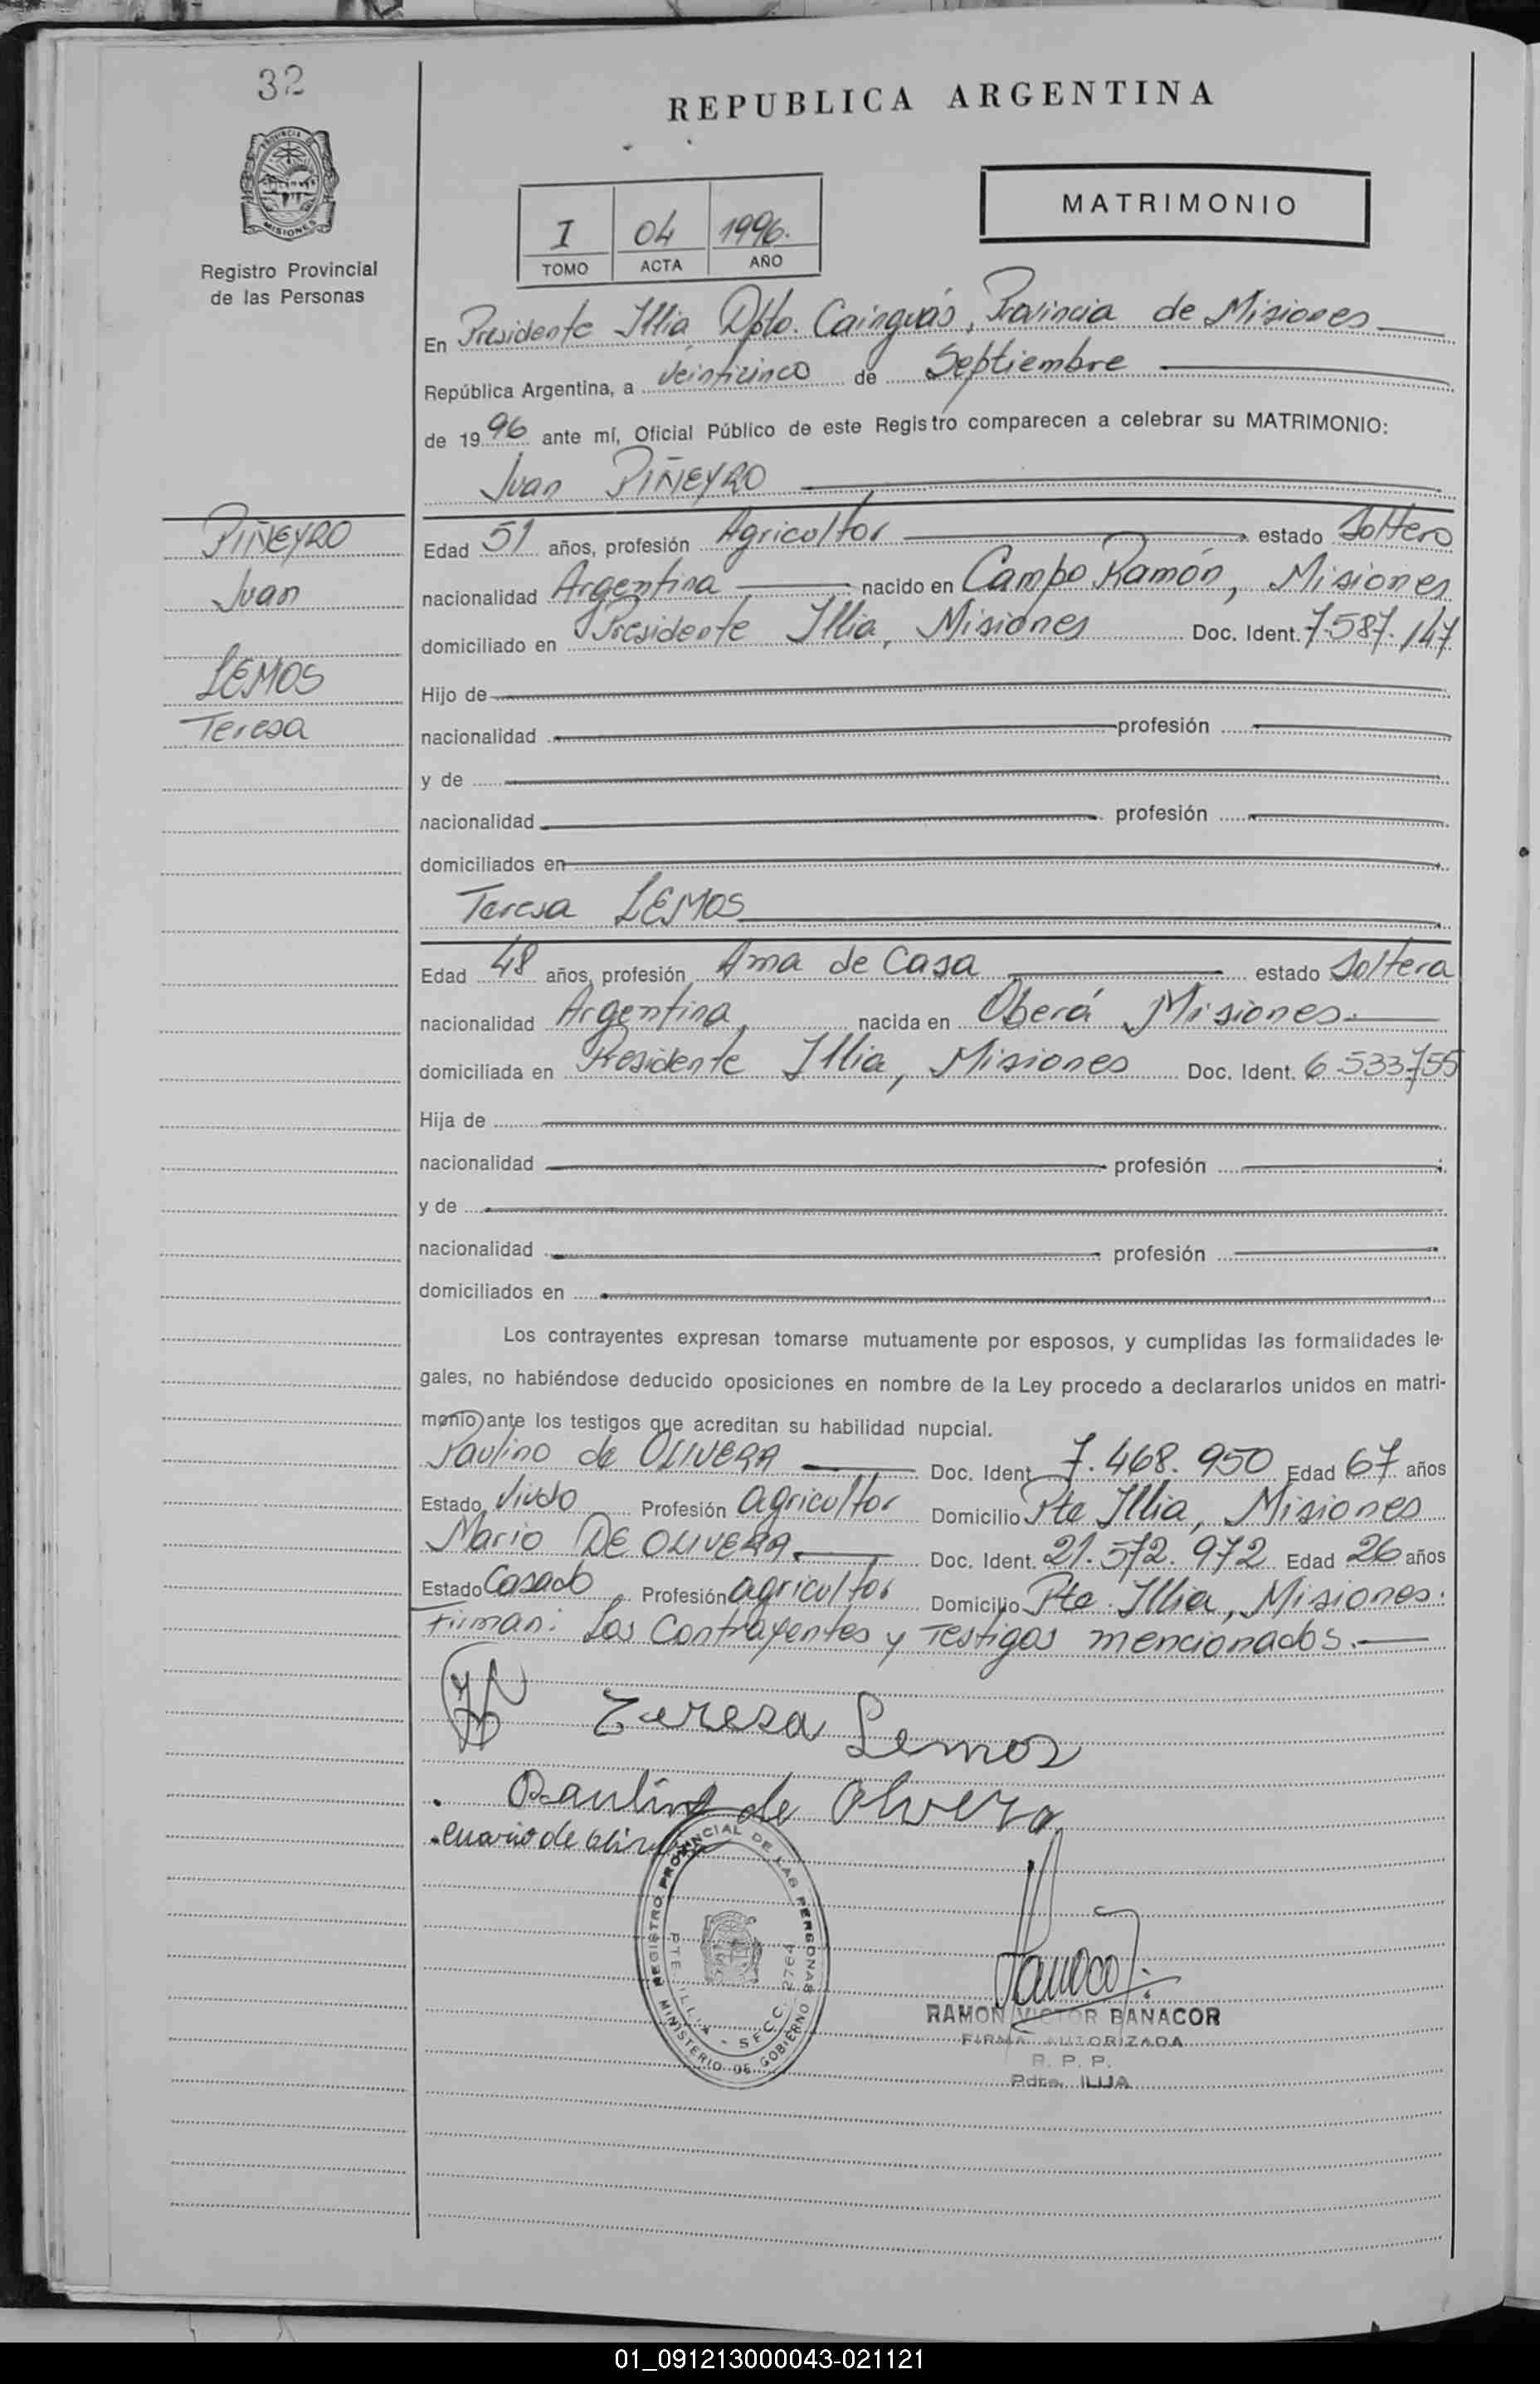 32
REPUBLICA ARGENTINA
PROVINCIA DE
MISIONES
Registro Provincial
de las Personas
I 04 1996.
TOMO ACTA AÑO
MATRIMONIO
En Presidente Illia Dpto. Cainguás, Provincia de Misiones
República Argentina, a veinticinco de Septiembre
de 1996 ante mí, Oficial Público de este Registro comparecen a celebrar su MATRIMONIO:
Juan PIÑEYRO
PIÑEYRO
Juan
LEMOS
Teresa
Edad 51 años, profesión Agricultor estado Soltero
nacionalidad Argentina nacido en Campo Ramón, Misiones
domiciliado en Presidente Illia, Misiones Doc. Ident. 7.587.147
Hijo de
nacionalidad profesión
y de
nacionalidad profesión
domiciliados en
Teresa LEMOS
Edad 48 años, profesión Ama de Casa estado Soltera
nacionalidad Argentina, nacida en Oberá Misiones.
domiciliada en Presidente Illia, Misiones Doc. Ident. 6.533.755
Hija de
nacionalidad profesión
y de
nacionalidad profesión
domiciliados en
Los contrayentes expresan tomarse mutuamente por esposos, y cumplidas las formalidades le-
gales, no habiéndose deducido oposiciones en nombre de la Ley procedo a declararlos unidos en matri-
monio ante los testigos que acreditan su habilidad nupcial.
Paulino de OLIVERA Doc. Ident. 7.468.950 Edad 67 años
Estado Viudo Profesión agricultor Domicilio Pte Illia, Misiones
Mario DE OLIVERA. Doc. Ident. 21.572.972 Edad 26 años
Estado Casado Profesión agricultor Domicilio Pte. Illia, Misiones.
Firman: Los Contrayentes y Testigos mencionados.
Teresa Lemos
Paulino de Olivera
Mario de
REGISTRO PROVINCIAL DE LAS PERSONAS
PTE. ILLIA - SECC. 2764
MINISTERIO DE GOBIERNO
RAMON VICTOR BANACOR
FIRMA AUTORIZADA
R. P. P.
Pdte. ILLIA
01_091213000043-021121